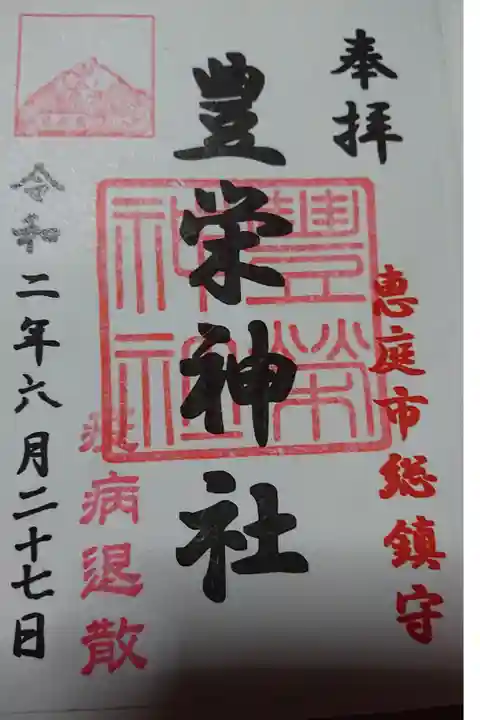 奉拝
恵庭市総鎮守
豊栄神社
豐榮
神社
疫病退散
令和二年六月二十七日